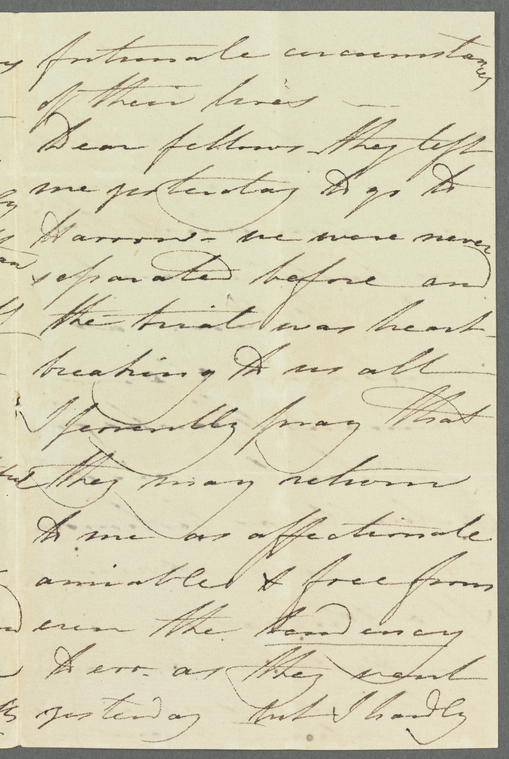 fortunate circumstances
of their lives —
Dear fellows they left
me yesterday to go to
Harrow - we were never
separated before and
the trial was heart-
breaking to us all
I fervently pray that
they may return
to me as affectionate
amiable & free from
even the tendency
to err. as they went
yesterday but I hardly